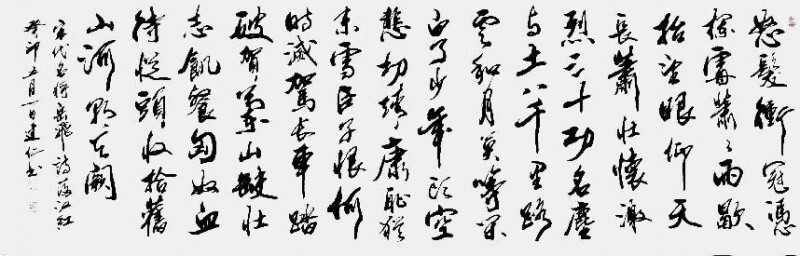 怒髮衝冠憑
欄處蕭〻雨歇
抬望眼仰天
長嘯壯懷激
烈三十功名塵
与土八千里路
雲和月莫等閑
白了少年頭空
悲切靖康恥猶
未雪臣子恨何
時滅駕長車踏
破賀蘭山缺壯
志飢餐匈奴血
待從頭收拾舊
山河朝天闕
宋代名將岳飛詩滿江紅
癸卯五月一日建仁書